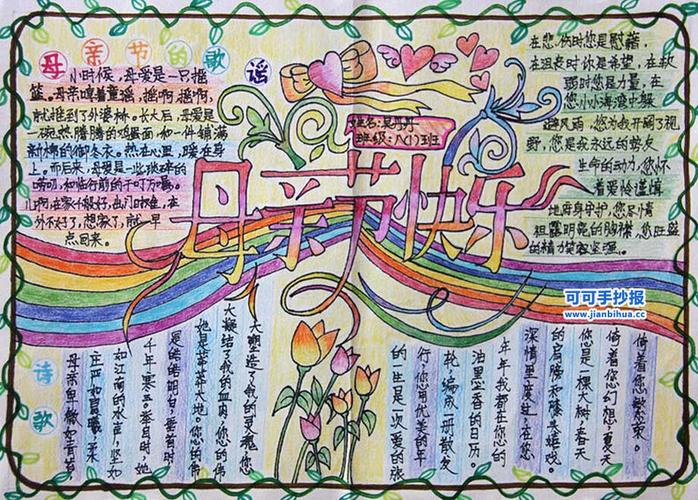 母亲节的歌谣
小时候，母爱是一只摇
篮。母亲哼着童谣，摇啊，摇啊，
就推到了外婆桥。长大后，母爱是
一碗热腾腾的鸡蛋面，如一件铺满
新棉的御冬衣。热在心里，暖在身
上。而后来，母爱是一些琐碎的
唠叨，和临行前的千叮万嘱。
儿啊，在家千般好，出门时难，在
外不好了，想家了，就早
点回来。
姓名：吴丹丹
班级：八(1)班
在悲伤时您是慰藉，
在沮丧时你是希望，在软
弱时您是力量，在
您小小海湾中躲
避风雨，您为我开阔了视
野，您是我永远的势友
生命的动力，您怀
着爱怜谨慎
地府身守护，您尽情
袒露明亮的胸襟，您旺盛
的精力笑容坚强。
母亲节快乐
可可手抄报
www.jianbihua.cc
诗歌
倚着您繁荣。
倚着您幻想，夏天
您是一棵大树，春天
的肩膀和膝头嬉戏。
深情里度过，在您
年年我都在您的
油墨香的日历。
轮，编成一册散发
行，您用优美的年
的一生是一次爱的旅
大塑造了我的灵魂，您
大凝结了我的血肉，您的伟
她是莽莽大地，您的伟
千年寒立。奉目时，她
如江南的水声，坚如
母亲卑微如青苔